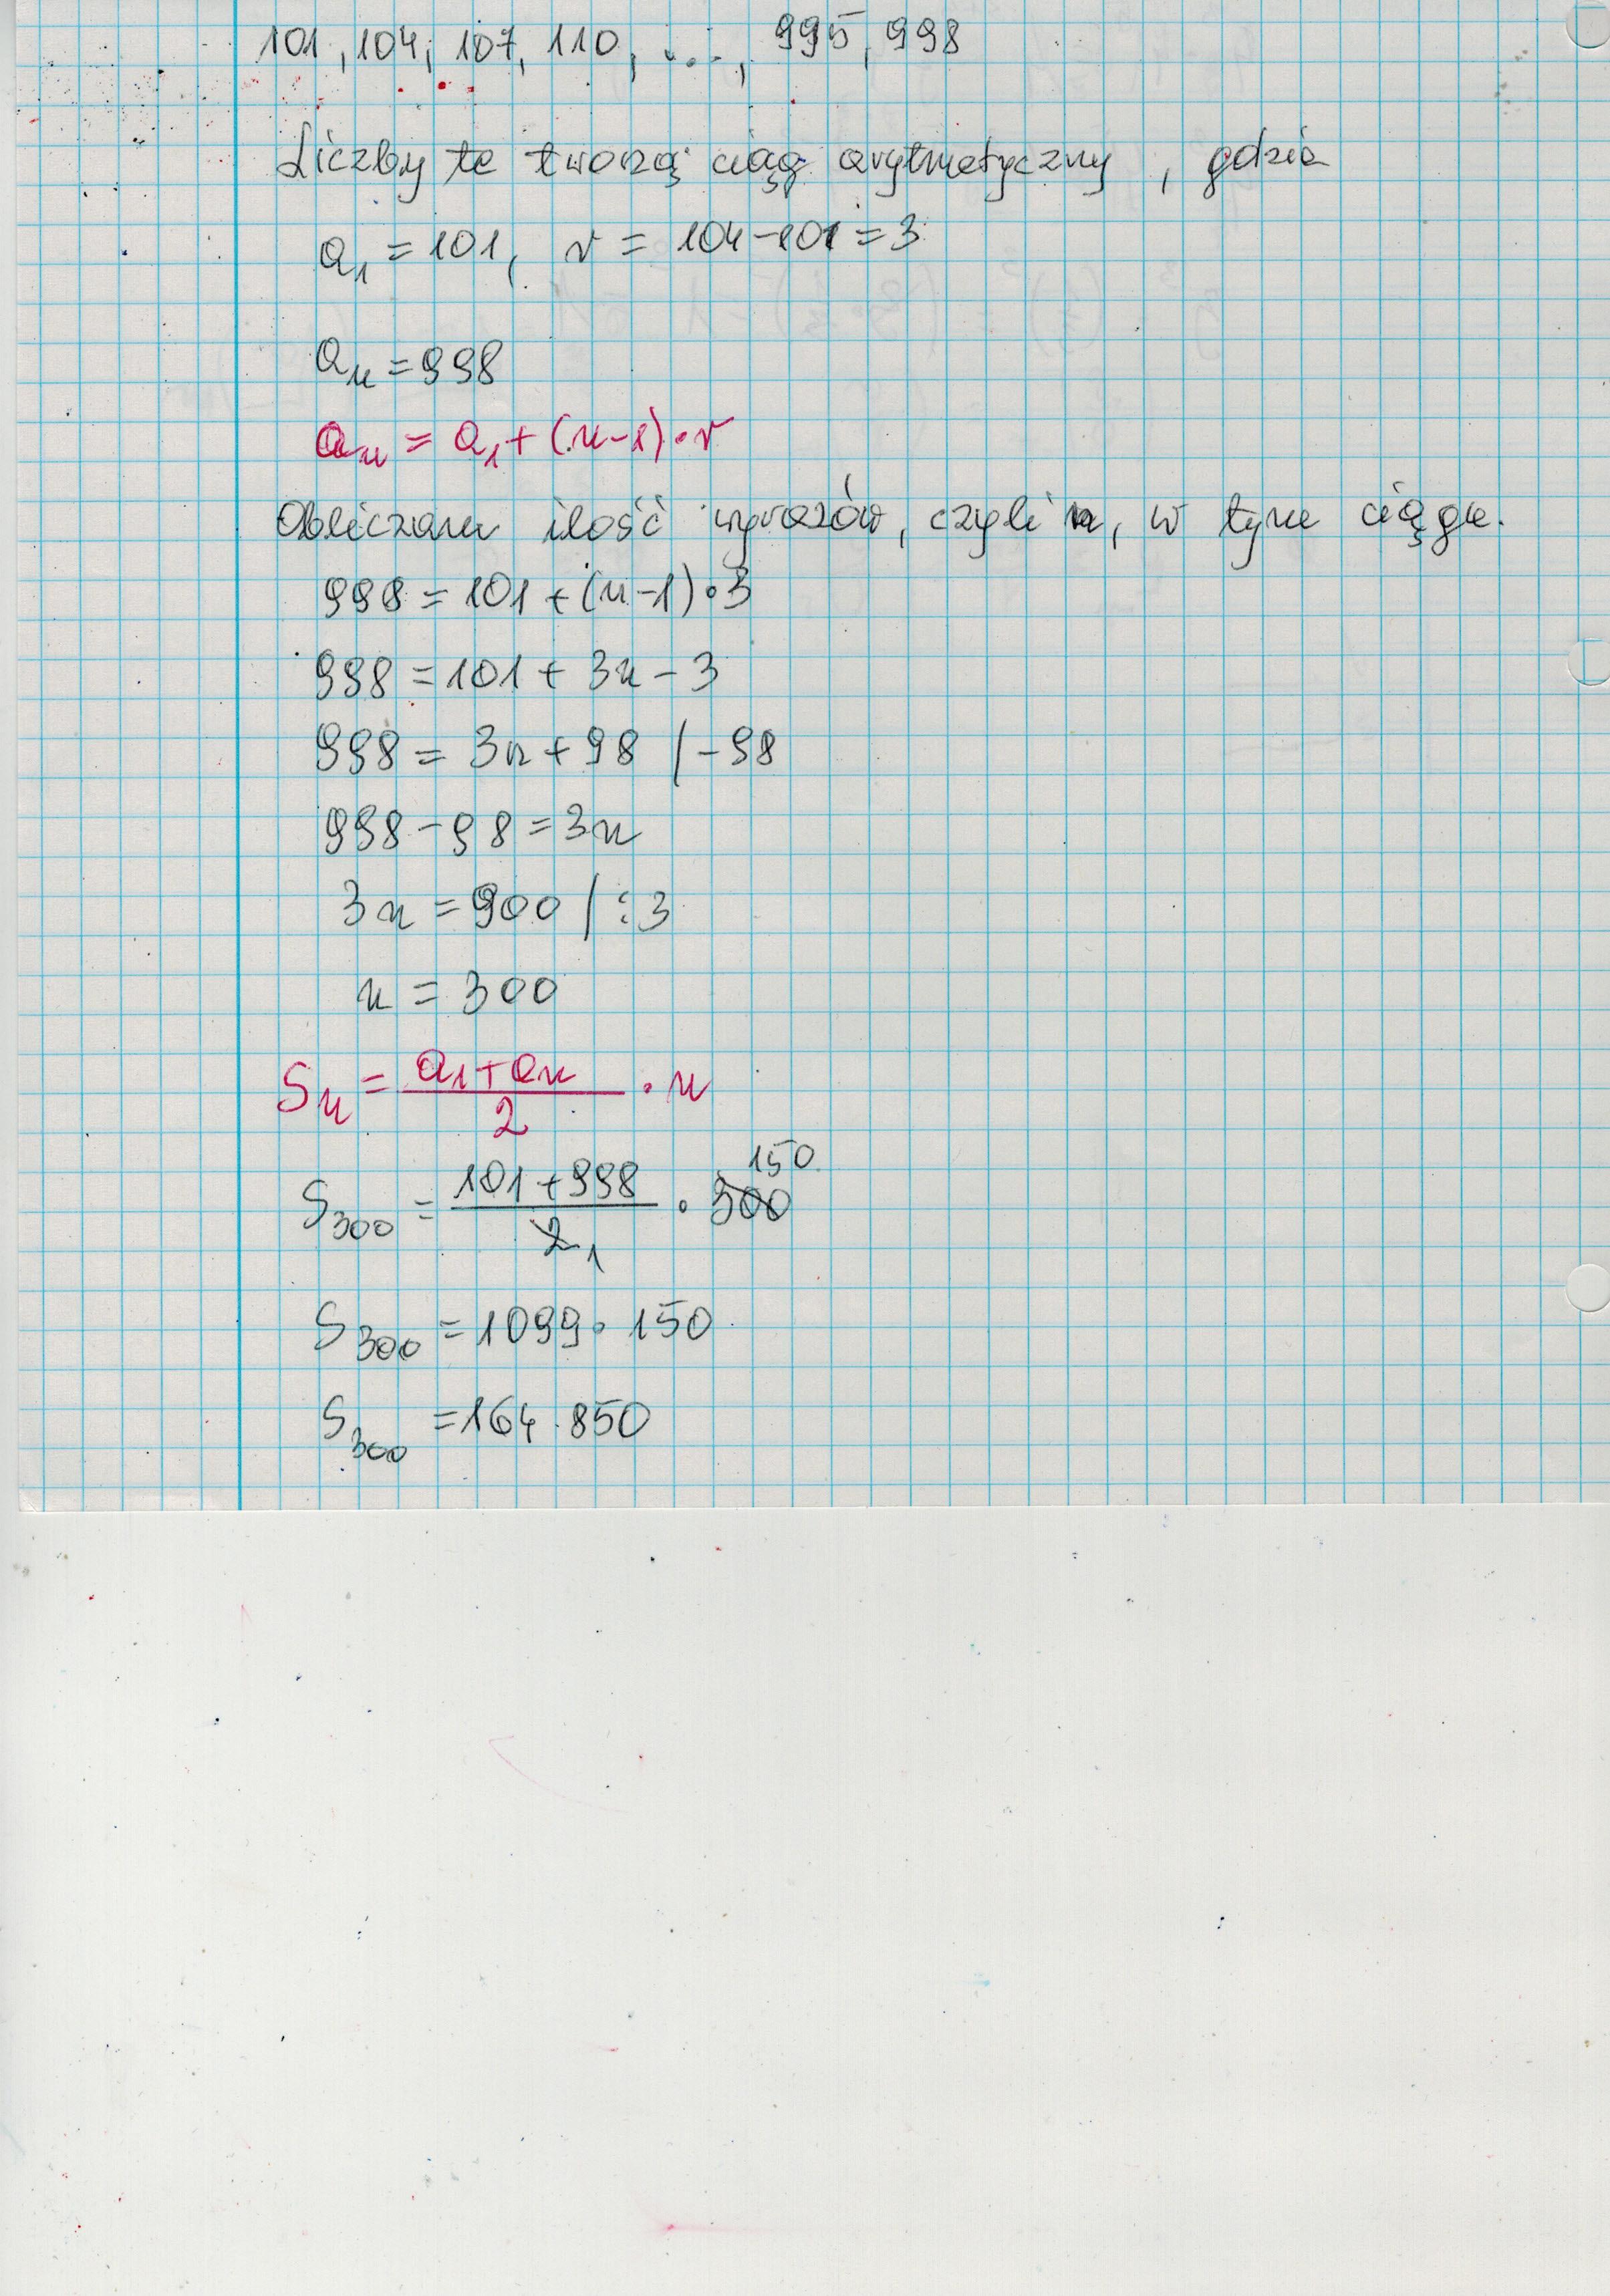 101, 104, 107, 110, ..., 995, 998
Liczby te tworzą ciąg arytmetyczny, gdzie
a₁ = 101, r = 104 - 101 = 3
aₙ = 998
aₙ = a₁ + (n-1)·r
Obliczam ilość wyrazów, czyli n, w tym ciągu.
998 = 101 + (n-1)·3
998 = 101 + 3n - 3
998 = 3n + 98 /-98
998 - 98 = 3n
3n = 900 / :3
n = 300
Sₙ = (a₁ + aₙ)/2 · n
S₃₀₀ = (101 + 998)/2 1 · 300 150
S₃₀₀ = 1099 · 150
S₃₀₀ = 164.850